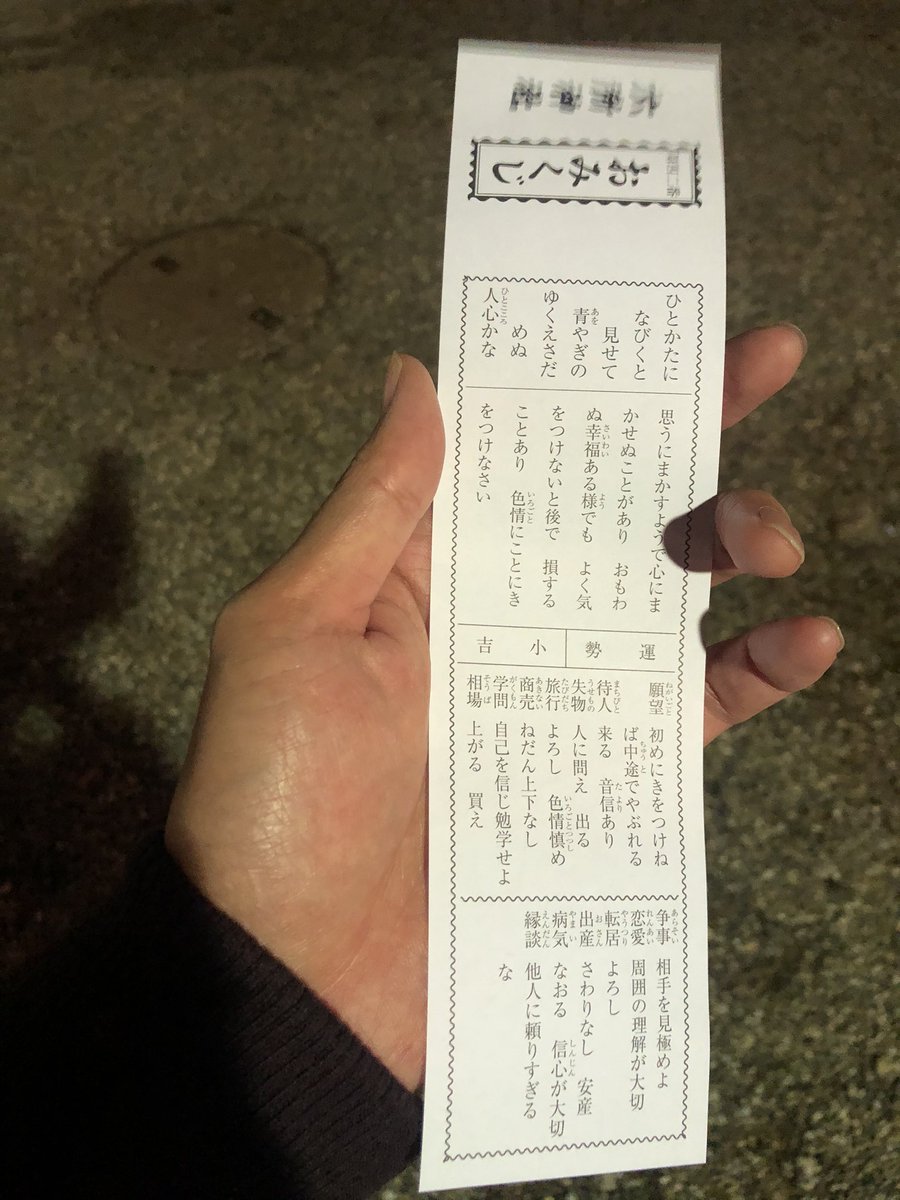 おみくじ
ひとかたに
なびくと
見せて
青やぎの
ゆくえさだ
めぬ
人心かな
思うにまかすようで心にま
かせぬことがあり　おもわ
ぬ幸福ある様でも　よく気
をつけないと後で　損する
ことあり　色情にことにき
をつけなさい
運勢
小吉
願望　初めにきをつけね
ば中途でやぶれる
待人　来る　音信あり
失物　人に問え　出る
旅行　よろし　色情慎め
商売　ねだん上下なし
学問　自己を信じ勉学せよ
相場　上がる　買え
争事　相手を見極めよ
恋愛　周囲の理解が大切
転居　よろし
出産　さわりなし　安産
病気　なおる　信心が大切
縁談　他人に頼りすぎる
な